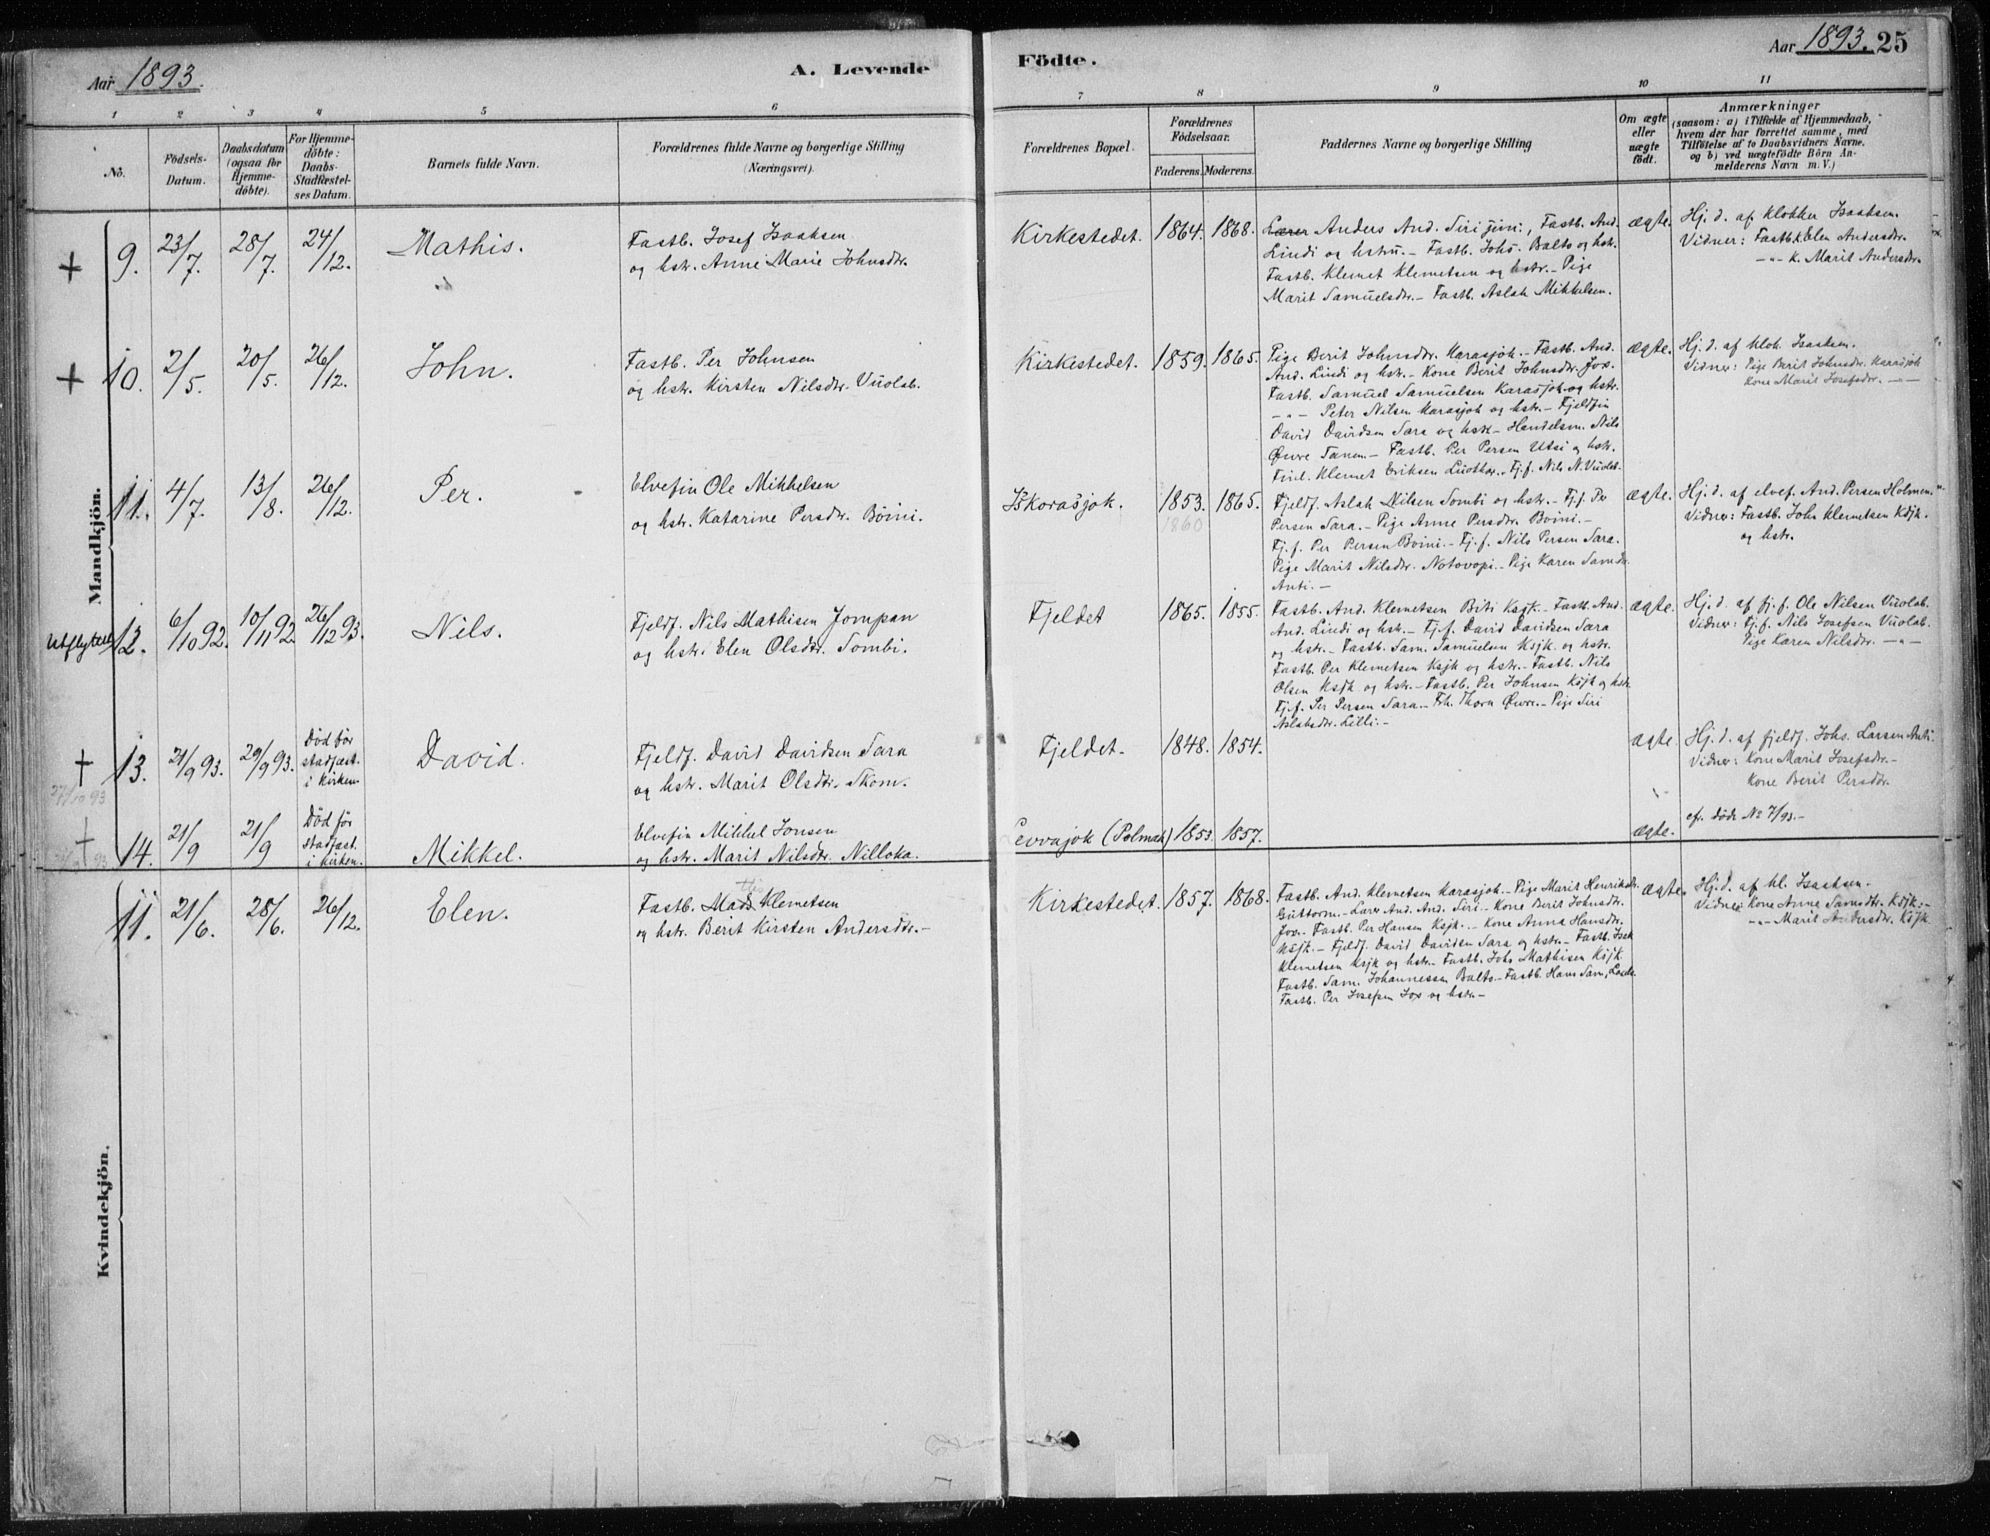 Aar 1893.
A. Levende
Födte.
Aar 1893. 25
1 2 3 4 5 6
7 8 9 10 11
No.
Födsels-
Datum.
Daabsdatum
(ogsaa for
Hjemme-
döbte).
For Hjemme-
döbte:
Daabs-
Stadfæstel-
ses Datum.
Barnets fulde Navn.
Forældrenes fulde Navne og borgerlige Stilling
(Næringsvei).
Forældrenes Bopæl.
Forældrenes
Födselsaar.
Faderens. Moderens.
Faddernes Navne og borgerlige Stilling
Om ægte
eller
uægte
födt.
Anmærkninger
(saasom: a) i Tilfælde af Hjemmedaab,
hvem der har forrettet samme, med
Tilföielse af to Daabsvidners Navne,
og b) ved uægtefödte Börn An-
melderens Navn m. V.)
Mandkjön.
+ 9. 23/7. 28/7. 24/12. Mathis.
Fastb. Josef Isaaksen
og hstr. Anne Marie Johnsdtr.
Kirkestedet. 1864. 1868.
Lærer Anders And. Siri, Fastb. And.
Lindi og hstru. – Fastb. Johs. Balto og hstr.
Fastb. Klemet Klemetsen og hstr. – Pige
Marit Samuelsdtr. – Fastb. Aslak Mikkelsen.
ægte.
Hj. d. af klokker Isaaksen.
Vidner: Fastb.k. Elen Andersdtr.
–"– k. Marit Andersdtr.
+ 10. 2/5. 20/5. 26/12. John.
Fastb. Per Johnsen
og hstr. Kirsten Nilsdtr. Vuolab.
Kirkestedet. 1859. 1865.
Pige Berit Johnsdtr. Karasjok. – Fastb. And.
And. Lindi og hstr. – Kone Berit Johnsdtr. Jox.
Fastb. Samuel Samuelsen Karasjok og hstr.
–"– Peter Nilsen Karasjok og hstr. – Fjeldfin
David Davidsen Sara og hstr – Handelsm. Nils
Øwre Tanem. – Fastb. Per Persen Utsi og hstr.
Find. Klemet Eriksen . Fj.f. Nils N. Vuolab.
ægte.
Hj. d. af klok. Isaksen.
Vidner: Pige Berit Johnsdtr. Karasjok
Kone Marit Josefsdtr. –"–
11. 4/7. 13/8. 26/12. Per.
Elvefin Ole Mikkelsen
og hstr. Katarine Persdtr. Boini.
Iskorasjok. 1853. 1865.
1860
Fjeldf. Aslak Nilsen Sombi og hstr. – Fj.f. Per
Persen Sara. – Pige Anne Persdtr. Boini. –
Fj.f. Per Persen Boini. – Fj.f. Nils Persen Sara.
Pige Marit Nilsdtr. Notovopi. – Pige Karen Samdtr.
Anti. –
ægte.
Hj. d. af elvef. And. Persen Holmen.
Vidner: Fastb. John Klemetsen Ksjk.
og hstr.
Utflyttet 12. 6/10 92. 10/11 92. 26/12 93. Nils.
Fjeldf. Nils Mathisen Jompan
og hstr. Elen Olsdtr. Sombi.
Fjeldet 1865. 1855.
Fastb. And. Klemetsen Biti Ksjk. – Fastb. And.
And. Lindi og hstr. – Fj.f. David Davidsen Sara
og hstr. – Fastb. Sam. Samuelsen Ksjk. og hstr.
Fastb. Per Klemetsen Ksjk og hstr. – Fastb. Nils
Olsen Ksjk og hstr. – Fastb. Per Johnsen Ksjk og hstr.
Fj.f. Per Persen Sara. – Frk. Thora Øwre. – Pige Siri
Aslaksdtr. Lilli. –
ægte.
Hj. d. af fj.f. Ole Nilsen Vuolab.
Vidner: Fj.f. Nils Josefsen Vuolab.
Pige Karen Nilsdtr. –"–
+ 13. 21/9 93. 29/9 93.
27/10 93
Död før
stadfæst.
i kirken
David.
Fjeldf. David Davidsen Sara
og hstr. Marit Olsdtr. Skom.
Fjeldet. 1848. 1854.
ægte.
Hj. d. af fjeldf. Johs. Larsen Anti.
Vidner: Kone Marit Josefsdtr. –
Kone Berit Persdtr.
+ 14. 21/9 21/9
Död før
stadfæst.
i kirken.
Mikkel.
Elvefin Mikkel Jonsen
og hstr. Marit Nilsdtr. Nilloka.
Levvajok (Polmak) 1853. 1857.
ægte.
cfr. døde No 7/93. –
Kvindekjön.
11. 21/6. 28/6. 26/12. Elen.
Fastb. Mads Klemetsen
og hstr. Berit Kirsten Andersdtr. –
Kirkestedet. 1857. 1868.
Fastb. And. Klemetsen Karasjok. – Pige Marit Henriksdtr.
Guttorm. – Lærer And. And. Siri. – Kone Berit Johnsdtr.
Jox. – Fastb. Per Hansen Ksjk. – Kone Anna Hansdtr.
Ksjk. – Fjeldf. David Davidsen Sara og hstr. – Fastb. Isak
Klemetsen Ksjk og hstr. – Fastb. Johs Mathisen Ksjk.
Fastb. Sam. Johannessen Balto. – Fastb. Hans Sam.
Fastb. Per Josefsen Jox og hstr. –
ægte.
Hj. d. af kl. Isaaksen.
Vidner: Kone Anne Samsdtr. Ksjk. –
–"– Marit Andersdtr. Ksjk.